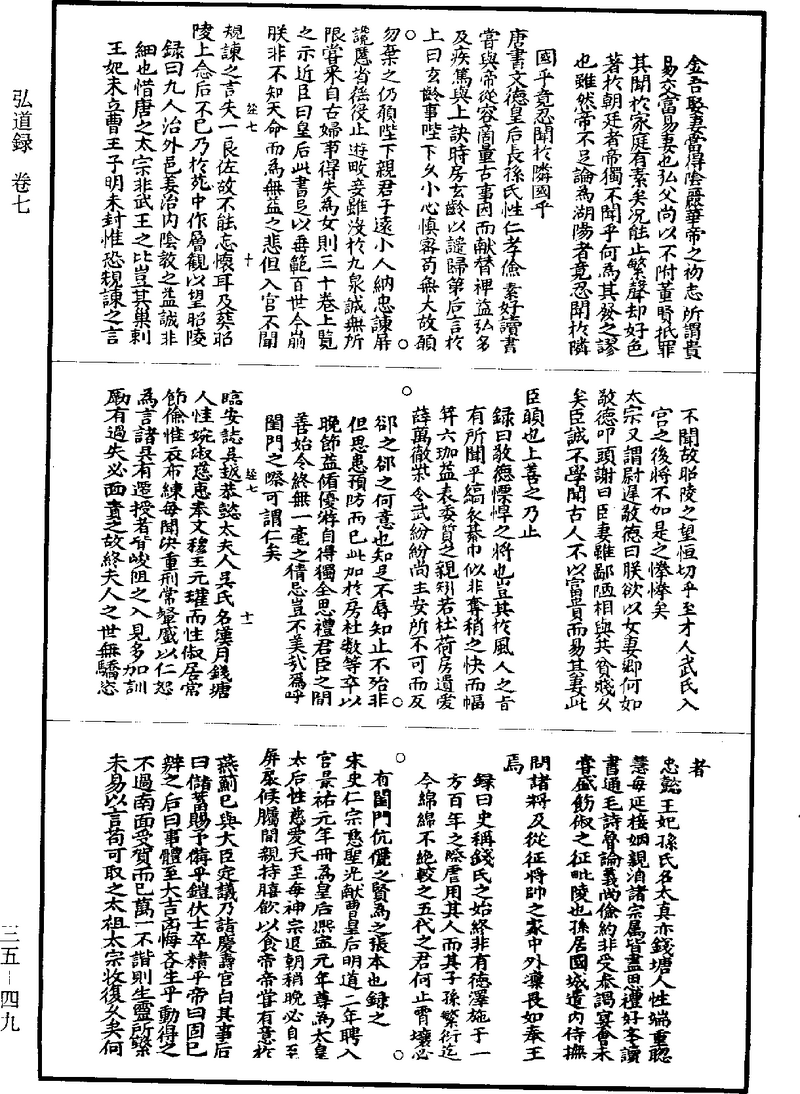 弘道録　卷七
三五－四九
金吾娶妻當得陰麗華帝之初志所謂貴
易交富易妻也弘父尚以不附董賢抵罪
其聞於家庭有素矣況能止繁聲却好色
著於朝廷者帝獨不聞乎何爲其發之謬
也雖然帝不足論爲湖陽者竟忍聞於隣
國乎竟忍聞於隣國乎
唐書文德皇后長孫氏性仁孝儉素好讀書
嘗與帝從容商量古事因而獻替裨益弘多
及疾篤與上訣時房玄齡以譴歸第后言於
上曰玄齡事陛下久小心愼密苟無大故願
勿棄之仍願陛下親君子遠小人納忠諫屏
讒慝省徭役止遊畋妾雖沒於九泉誠無所
限嘗采自古婦事得失爲女則三十卷上覽
之示近臣曰皇后此書足以垂範百世今崩
朕非不知天命而爲無益之悲但入宮不聞
規諫之言失一良佐故不能忘懷耳及葬昭
陵上念后不已乃於苑中作層觀以望昭陵
録曰九人治外邑姜治内陰敎之益誠非
細也惜唐之太宗非武王之比豈其巢剌
王妃未立曹王子明未封惟恐規諫之言
不聞故昭陵之望恒切乎至才人武氏入
宮之後將不如是之惓惓矣
太宗又謂尉遲敬德曰朕欲以女妻卿何如
敬德叩頭謝曰臣妻雖鄙陋相與共貧賤久
矣臣誠不學聞古人不以富貴而易其妻此
臣願也上善之乃止
録曰敬德慓悍之將也豈其於風人之旨
有所聞乎縞衣綦巾似非奪矟之快而幅
笄六珈益表委質之親矧若杜荷房遺愛
薛萬徹柴令武紛紛尚主安所不可而反
郤之郤之何意也知足不辱知止不殆非
但思患預防而已此加於房杜數等卒以
晚節益脩優游自得獨全恩禮君臣之間
善始令終無一毫之猜忌豈不美哉爲呼
閨門之際可謂仁矣
臨安誌吳越恭懿太夫人吳氏名漢月錢塘
人性婉淑慈惠奉文穆王元瓘而性俶居常
節儉惟衣布練每聞決重刑常顰蹙以仁恕
爲言諸吳有遷授者皆峻阻之入見多加訓
厲有過失必面責之故終夫人之世無驕恣
者
忠懿王妃孫氏名太真亦錢塘人性端重聰
慧每延接姻親洎諸宗屬皆盡恩禮好學讀
書通毛詩魯論義尚儉約非受參謁宴會未
嘗盛飾俶之征毗陵也孫居國城遣内侍撫
問諸將及從征將帥之家中外凜畏如奉王
焉
録曰史稱錢氏之始終非有德澤施于一
方百年之際虐用其人而其子孫繁衍迄
今綿綿不絶較之五代之君何止霄壤必
有閨門伉儷之賢爲之張本也録之
宋史仁宗慈聖光獻曹皇后明道二年聘入
宮景祐元年冊爲皇后熙寧元年尊爲太皇
太后性慈愛天至每神宗退朝稍晚必自至
屏扆候矚間親持膳飲以食帝帝嘗有意於
燕薊已與大臣定議乃詣慶壽宮白其事后
曰儲蓄賜予備乎鎧仗士卒精乎帝曰固已
辨之后曰事體至大吉凶悔吝生乎動得之
不過南面受賀而已萬一不諧則生靈所繫
未易以言苟可取之太祖太宗收復久矣何
卷七
十
卷七
十一